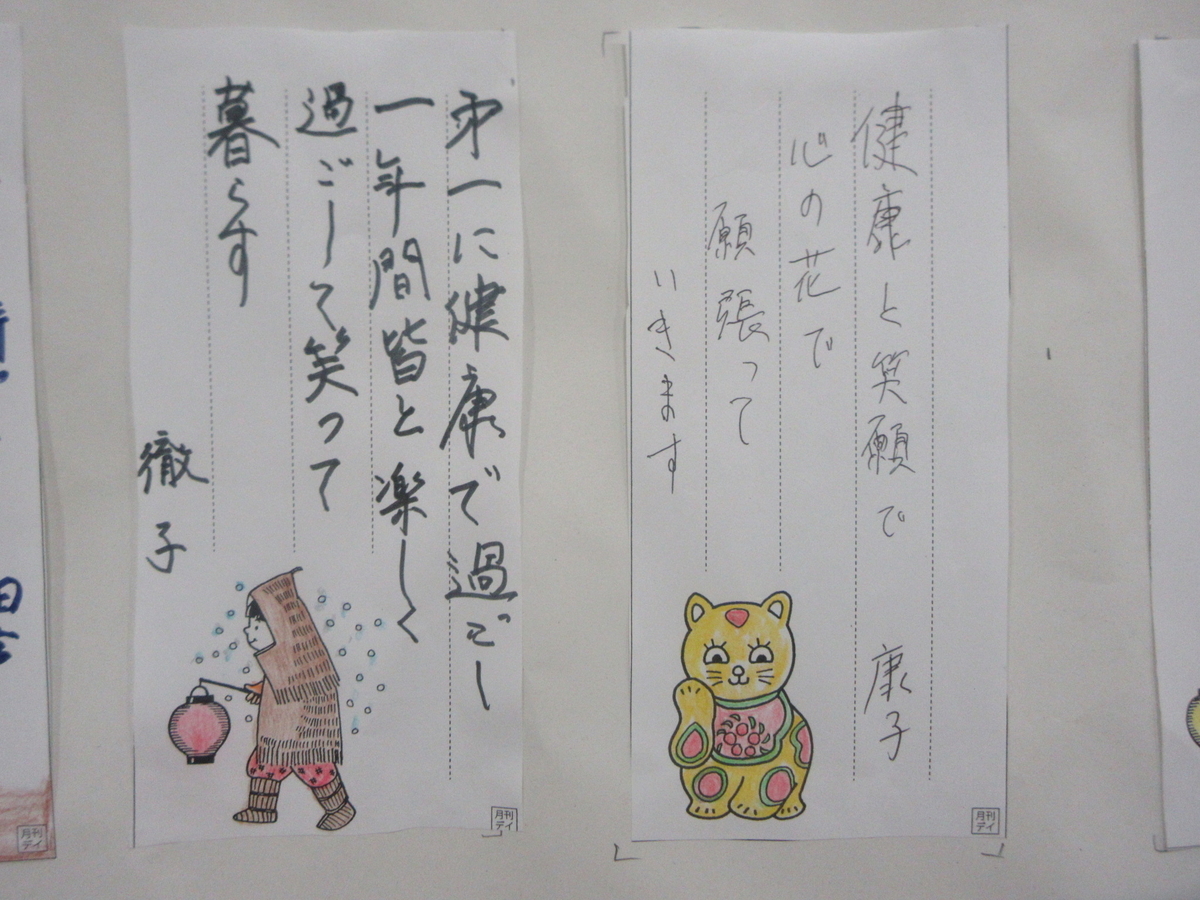 健康と笑願で 康子
心の花で
願張って
いきます
月刊
デイ
第一に健康で過ごし
一年間皆と楽しく
過ごして笑って
暮らす
徹子
月刊
デイ
月刊
デイ